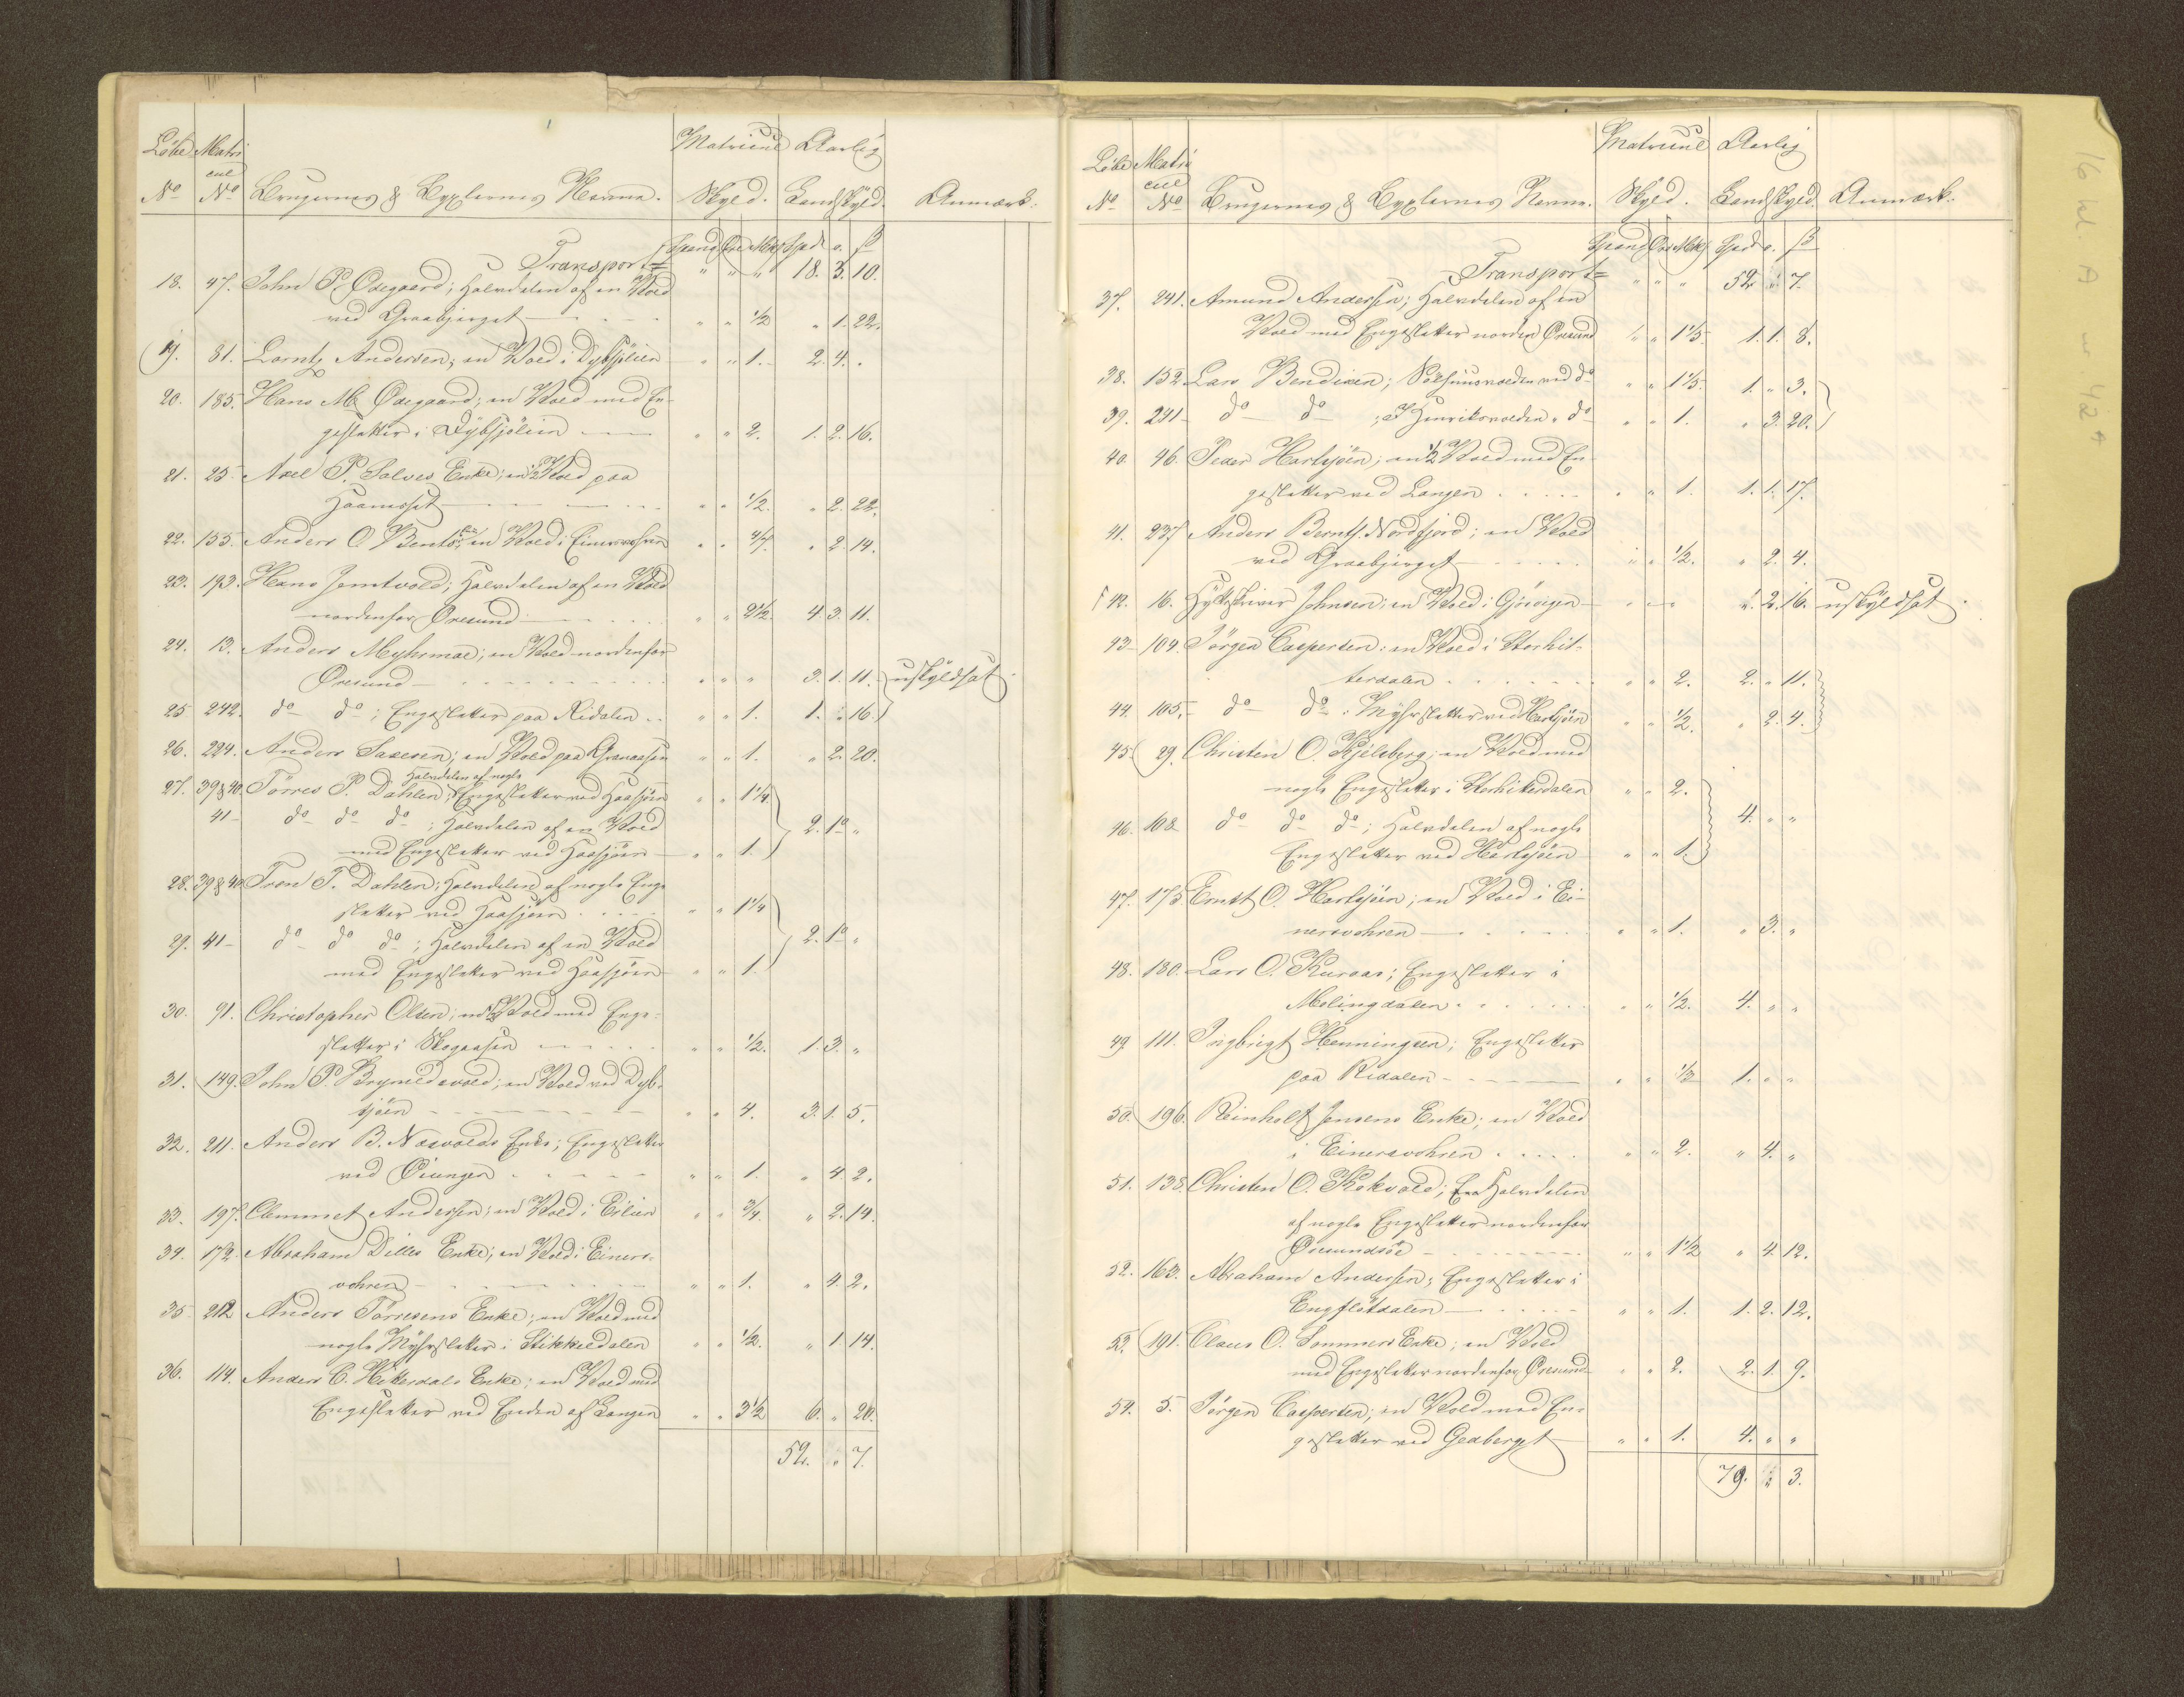 Löbe Matri Matricul Aarlig
cul
No No Brugernes & Bygslernes Navne. Skyld. Landskyld. Anmærk.
Spand Öre Mkl Spd o. ß
Transport= " " " 18. 3. 10.
18. 47. John P. Ödegaard; Halvdelen af en Vold
ved Graabjerget " " 1/2 " 1. 22.
19. 81. Larntz Andersen; en Vold i Dybsjölien " " 1. 2. 4. "
20. 185. Hans M. Ödegaard; en Vold med En-
geslætter i Dybsjölien " " 2. 1. 2. 16.
21. 25. Axel P. Salves Enke; en 1/2 Vold paa
Haaneset " " 1/2. " 2. 22.
22. 155. Anders O. Bentsen; en Vold i Einersvohren " " " 2. 14.
23. 193. Hans Jemtvold; Halvdelen af en Vold
nordenfor Öresund " " 2 1/2. 4. 3. 11.
24. 13. Anders Myhrmoe; en Vold nordenfor
Öresund " " " 3. 1. 11. uskyldsat.
25 242. do do; Engeslætter paa Ridalen " " 1. 1. " 16.
26. 224. Anders Saxesen; en Vold paa Granaasen " " 1. " 2. 20.
Halvdelen af nogle
27. 39 & 40. Törres P. Dahlen; Engeslætter ved Haasjöen " " 1 1/4
41 do do do; Halvdelen af en Vold 2. 1. "
med Engeslætter ved Haasjöen " " 1.
28. 39 & 40 Tron T. Dahlen; Halvdelen af nogle Enge-
slætter ved Haasjöen " " 1 1/4
29. 41 do do do; Halvdelen af en Vold 2. 1. "
med Engeslætter ved Haasjöen " " 1.
30. 91. Christopher Olsen; en 1/2 Vold med Enge-
slætter i Skogaasen " " 1/2. 1. 3. "
31. 149. John P. Brynildsvold; en Vold ved Dyb-
sjöen " " 4. 3. 1. 5.
32. 211. Anders B. Næsvolds Enke; Engeslætter
ved Öiungen " " 1. " 4. 2.
33. 197. Clemmet Andersen; en Vold i Eilien " " 3/4. " 2. 19.
34. 172. Abraham Dilles Enke; en Vold i Einers-
vohren " " 1. " 4. 2.
35 212 Anders Törresens Enke; en Vold med
nogle Myhrslætter i Stikkildalen " " 1/2. " 1. 14.
36. 114. Anders C. Hitterdals Enke; en Vold med
Engeslætter ved Enden af Langen " " 3 1/2 6. " 20.
52. " 7.
Löbe Matri Matricul Aarlig
cul
No No Brugernes & Bygslernes Navne. Skyld. Landskyld. Anmærk.
Spand Öre Mkl Spd o. ß
Transport= " " " 52 " 7.
37. 241. Amund Andersen; Halvdelen af en
Vold med Engeslætter norden Öresund " " 1 1/3. 1. 1. 8.
38. 152. Lars Bendixen; ved do " " 1 1/3. 1. " 3.
39. 241 do do; Henriksvolden " do " " 1. " 3. 20.
40. 96. Peder Harsjöen; en 1/2 Vold med En-
geslætter ved Langen " " 1. 1. 1. 17.
41. 237 Anders Bernts. Nordfjord; en Vold
ved Graabjerget " " 1/2. " 2. 4.
42. 16. Hytteskriver Johnsen; en Vold i Gjösvigen " 2. 16. uskyldsat.
43 104. Jörgen Caspersen; en Vold i Storhit-
terdalen " " 2. 2. " 11.
44. 105. do do; Myhrslætter ved Harsjöen " " 1/2. " 2. 4.
45. 29. Christen O. Kjelsberg; en Vold med
nogle Engeslætter i Storhitterdalen " " 2.
46. 108 do do do; Halvdelen af nogle 4. " "
Engeslætter ved Harsjöen " " 1.
47. 175 Ernst O. Harsjöen; en Vold i Ei-
nersvohren " " 1. " 3. "
48. 180. Lars O. Kuraas; Engeslætter i
Molingdalen " " 1/2. 4. " "
49 111. Ingbrigt Henningsen; Engeslætter
paa Ridalen " " 1/3 1. " "
50. 196. Reinholt Jensens Enke; en Vold
i Einersvohren " " 2. " 4. "
51. 138. Christen O. Kokvold; Halvdelen
af nogle Engeslætter nordenfor
Öresundsöe " " 1 1/2 " 4. 12.
52. 163. Abraham Andersen; Engeslætter i
Engflötdalen " " 1. 1. 2. 12.
53. 191. Claus O. Sommers Enke; en Vold
med Engeslætter nordenfor Öresund " " 2. 2. 1. 9.
54. 5. Jörgen Caspersen; en Vold med En-
geslætter ved Gedberget " " 1. 4. " "
79. " 3.
16 W A nr. 424